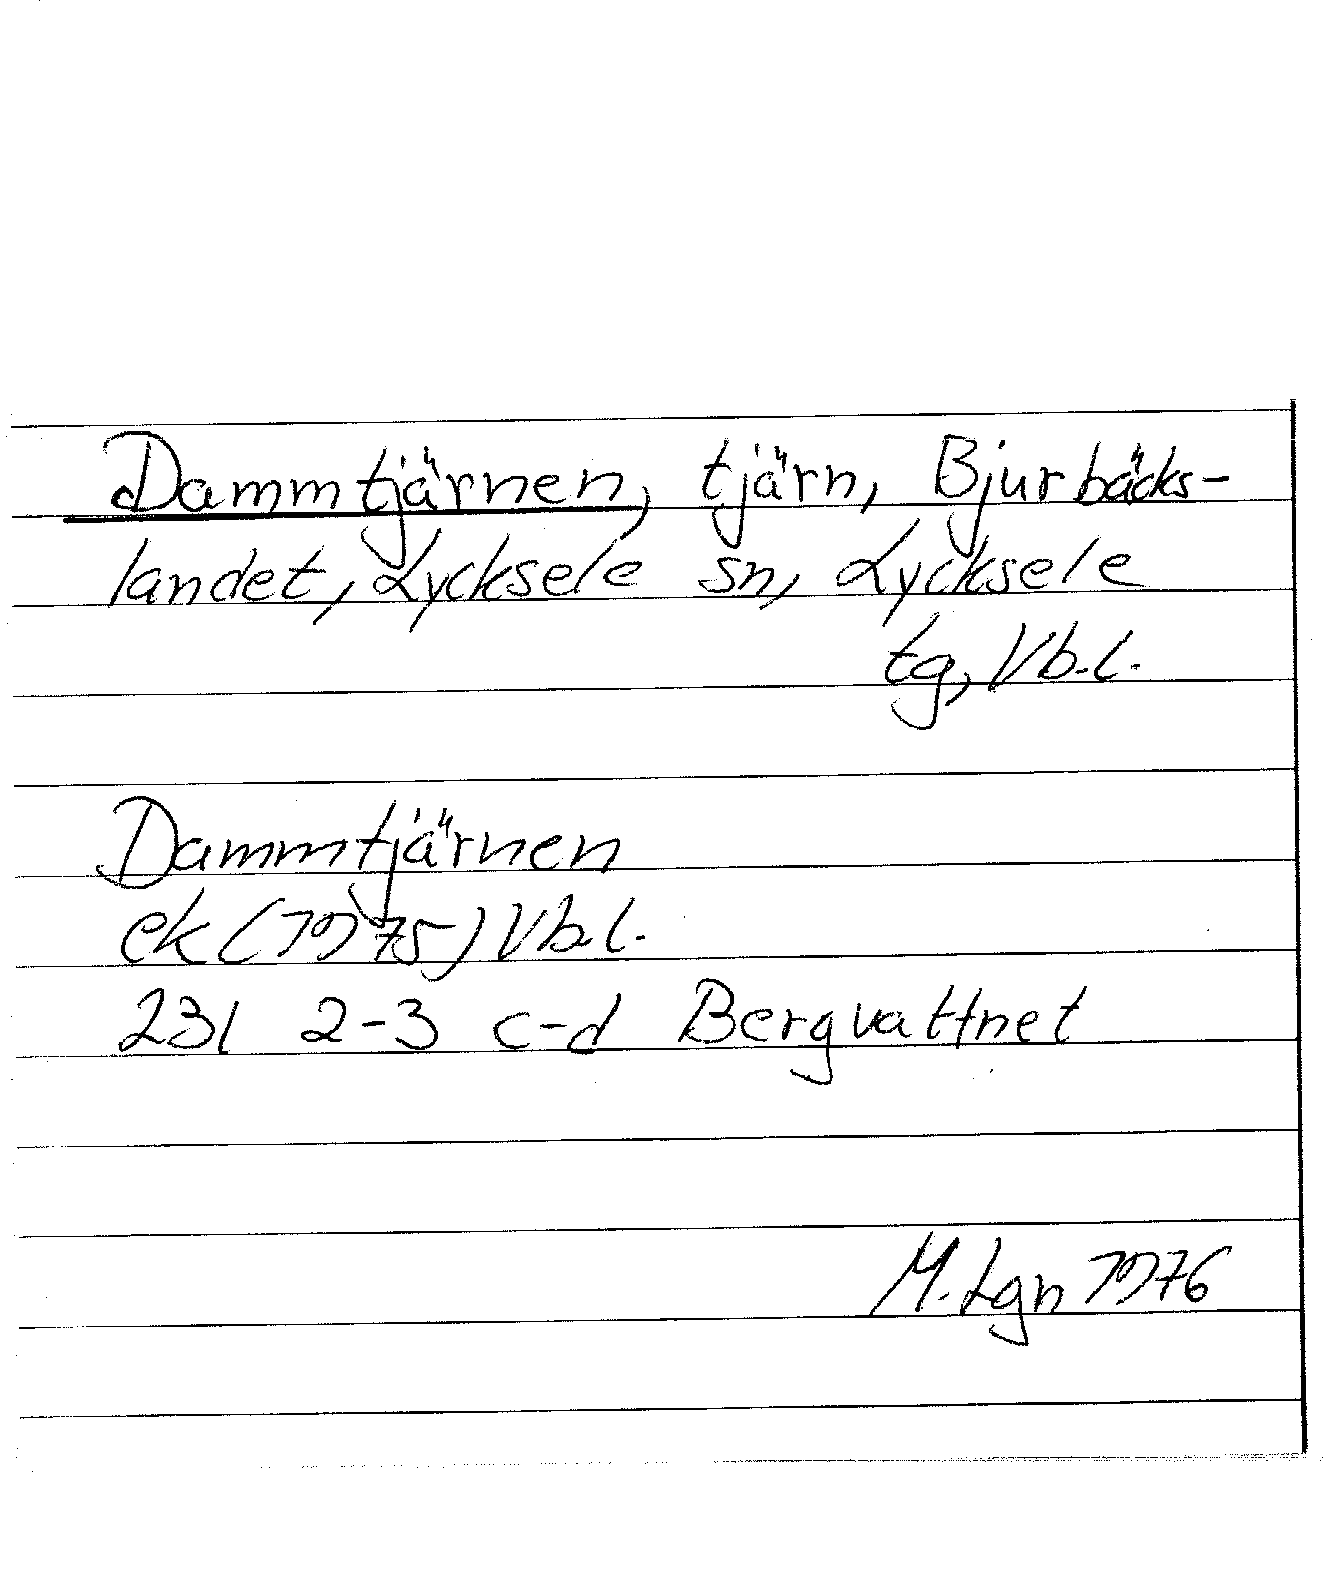 Dammtjärnen, tjärn, Bjurbäcks-
landet, Lycksele sn, Lycksele
tg, Vb.l.
Dammtjärnen
ek (1975) Vb.l.
23l 2-3 c-d Bergvattnet
M. Lgn 1976